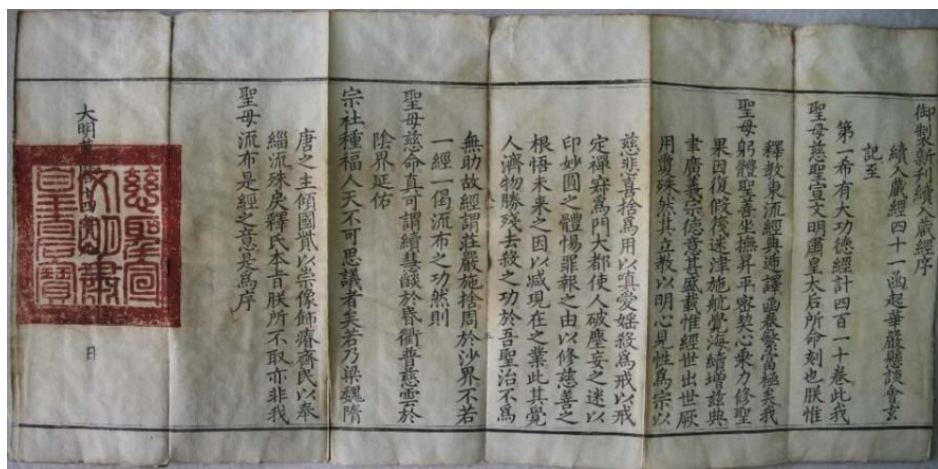 御製新刊續入藏經序
續入藏經四十一函起華嚴懸談會玄
記至
第一希有大功德經計四百一十卷此我
聖母慈聖宣文明肅皇太后所命刻也朕惟
釋教東流經典逓譯函卷繁富極矣我
聖母躬體聖善坐撫昇平密契心乘力修聖
果因復假筏迷津施航覺海續增茲典
聿廣善宗德意甚盛載惟經世出世厥
用夐殊然其立教以明心見性爲宗以
慈悲喜捨爲用以嗔愛婬殺爲戒以戒
定禪寂爲門大都使人破塵妄之迷以
印妙圓之體惕罪報之由以修慈善之
根悟未來之因以減現在之業此其覺
人濟物勝殘去殺之功於吾聖治不爲
無助故經謂莊嚴施捨周於沙界不若
一經一偈流布之功然則
聖母慈命真可謂續慧燄於昏衢普慈雲於
陰界延佑
宗社種福人天不可思議者矣若乃梁魏隋
唐之主傾國貲以崇像飾瘠齊民以奉
緇流殊戾釋氏本旨朕所不取亦非我
聖母流布是經之意是爲序
大明萬曆十 日
慈聖宣
文明肅
皇太后寶